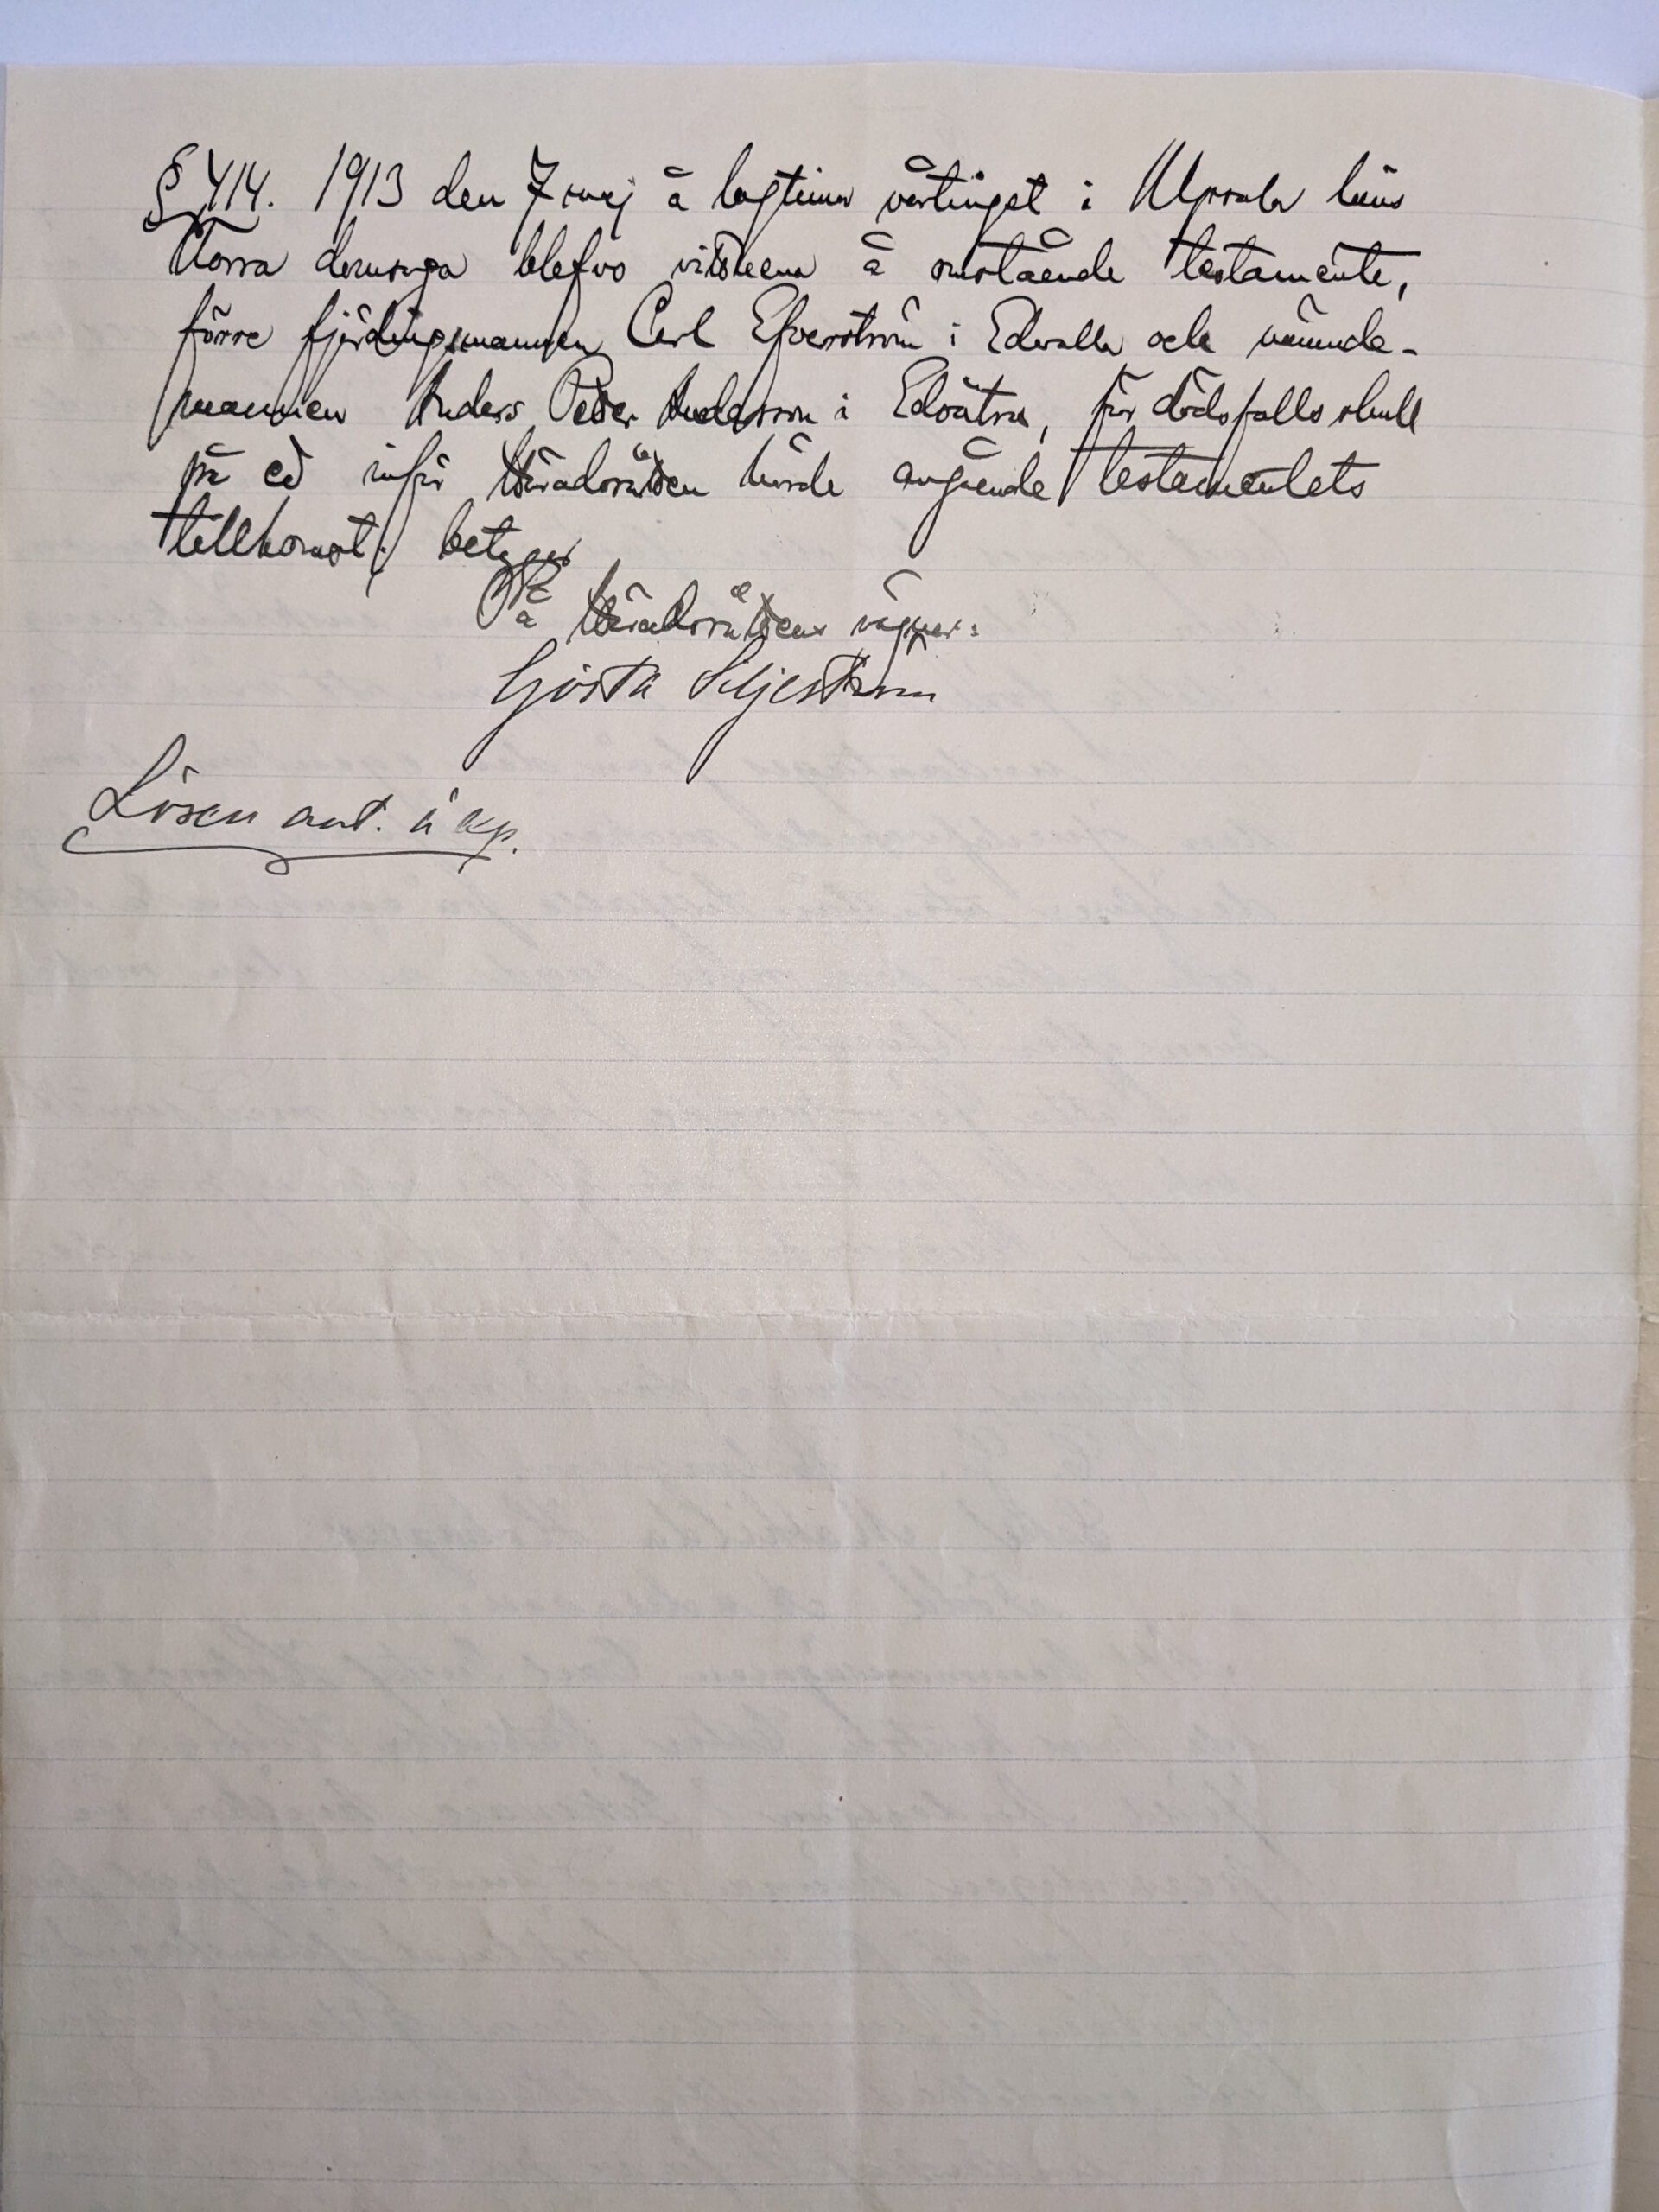 § 414. 1913 den 7 maj å lagtima vårtinget i Upsala läns
Norra domsaga blefvo vittnena å omstående testamente,
förre fjärdingsmannen Carl Efverström i Edvalla och nämnde-
mannen Anders Peter Andersson i Edsätra, för dödsfalls skull
på ed inför Häradsrätten hörde angående testamentets
tillkomst; betygar
På Häradsrättens vägnar:
Gösta Siljeström
Lösen ant. å exp.